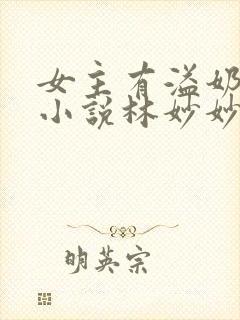 女主有溢奶
小説林妙妙
明英宗